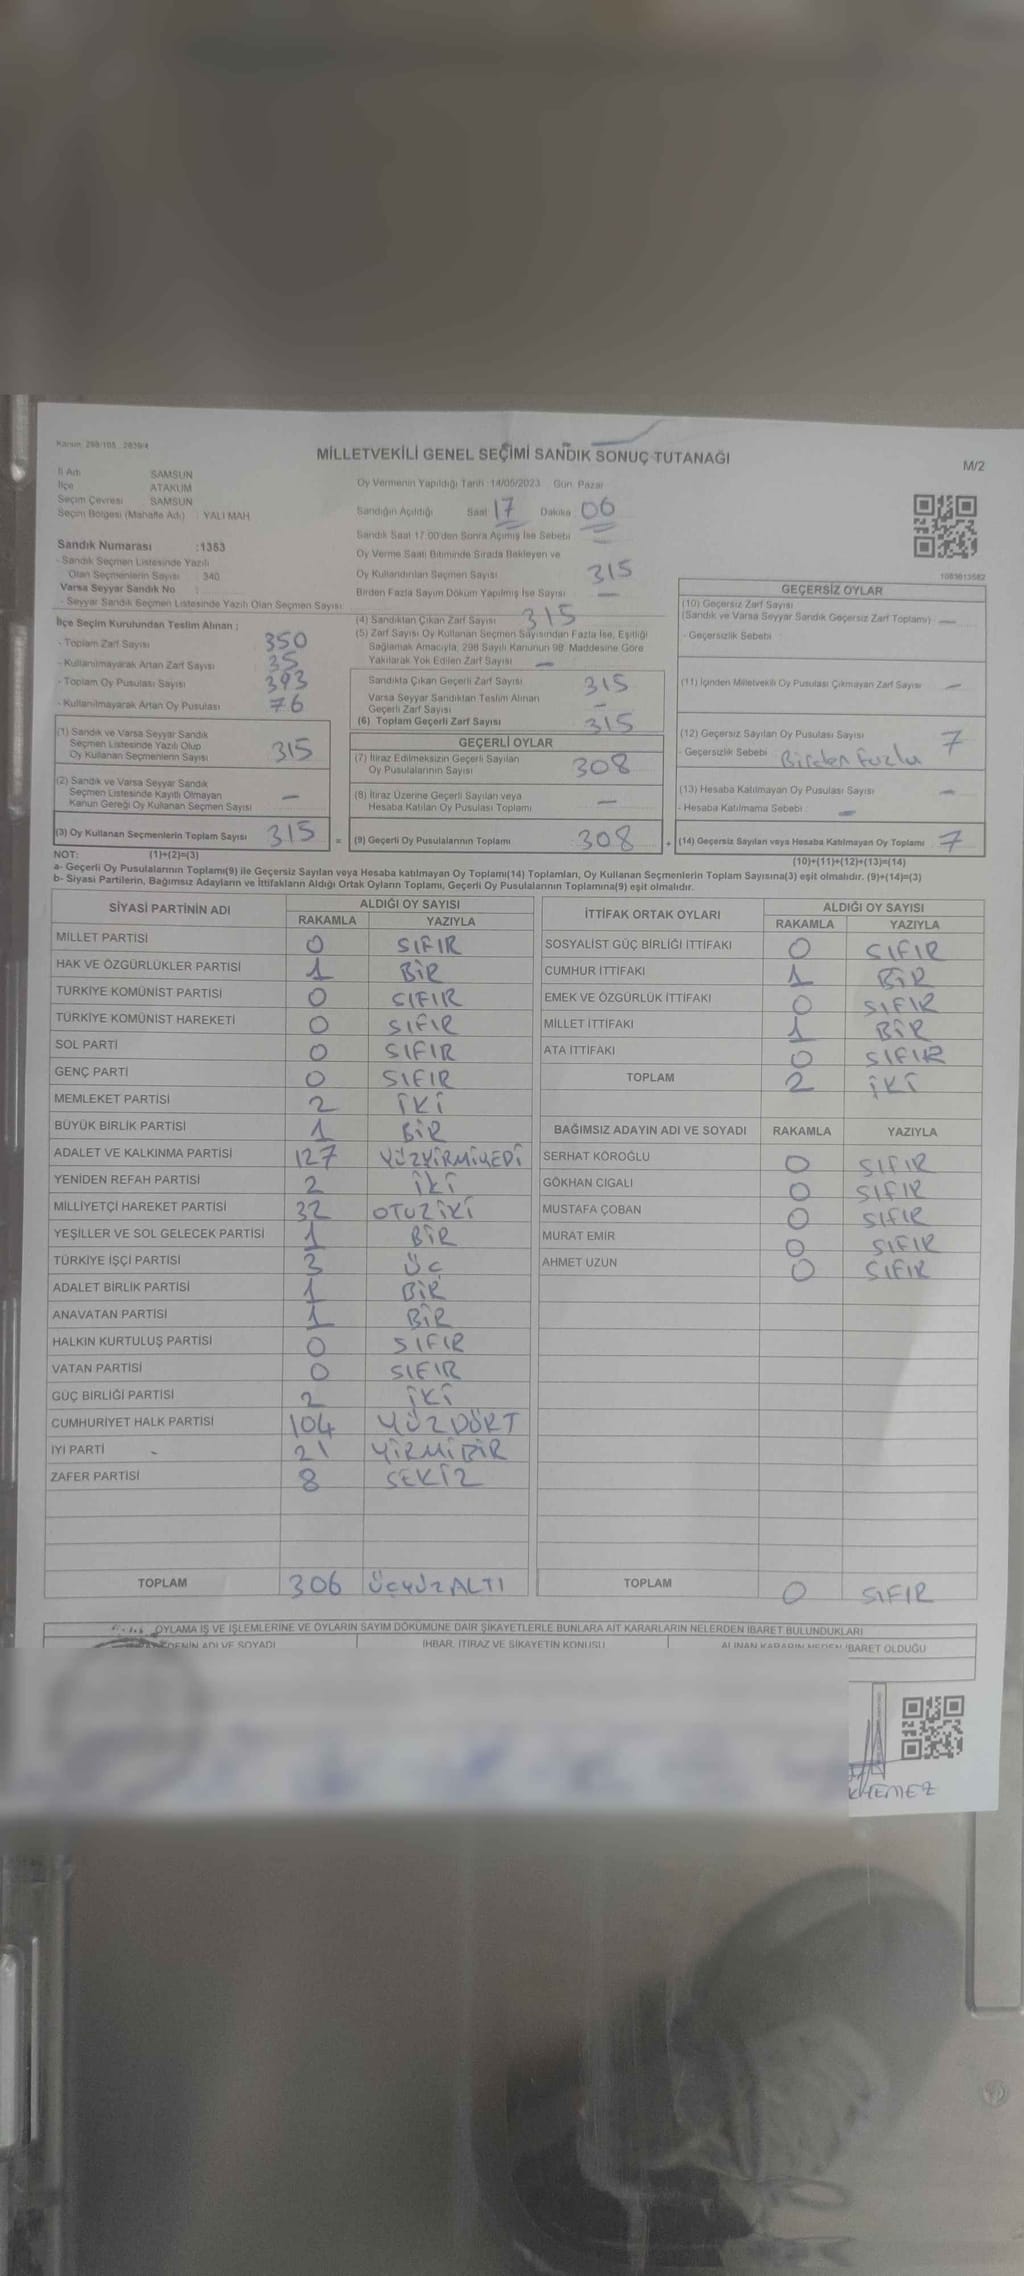 Kanun 298/105 . 2839/4
MİLLETVEKİLİ GENEL SEÇİMİ SANDIK SONUÇ TUTANAĞI
M/2
İl Adı SAMSUN
İlçe ATAKUM
Seçim Çevresi SAMSUN
Seçim Bölgesi (Mahalle Adı) : YALI MAH
Oy Vermenin Yapıldığı Tarih :14/05/2023 Gün: Pazar
Sandığın Açıldığı Saat 17 Dakika 06
Sandık Saat 17.00'den Sonra Açılmış İse Sebebi
Oy Verme Saati Bitiminde Sırada Bekleyen ve
Oy Kullandırılan Seçmen Sayısı 315
Birden Fazla Sayım Döküm Yapılmış İse Sayısı —
Sandık Numarası :1363
- Sandık Seçmen Listesinde Yazılı
Olan Seçmenlerin Sayısı : 340
Varsa Seyyar Sandık No :
- Seyyar Sandık Seçmen Listesinde Yazılı Olan Seçmen Sayısı
1083013582
İlçe Seçim Kurulundan Teslim Alınan :
- Toplam Zarf Sayısı 350
- Kullanılmayarak Artan Zarf Sayısı 35
- Toplam Oy Pusulası Sayısı 393
- Kullanılmayarak Artan Oy Pusulası 76
(1) Sandık ve Varsa Seyyar Sandık
Seçmen Listesinde Yazılı Olup
Oy Kullanan Seçmenlerin Sayısı 315
(2) Sandık ve Varsa Seyyar Sandık
Seçmen Listesinde Kayıtlı Olmayan
Kanun Gereği Oy Kullanan Seçmen Sayısı —
(3) Oy Kullanan Seçmenlerin Toplam Sayısı 315 =
(4) Sandıktan Çıkan Zarf Sayısı 315
(5) Zarf Sayısı Oy Kullanan Seçmen Sayısından Fazla İse, Eşitliği
Sağlamak Amacıyla, 298 Sayılı Kanunun 98. Maddesine Göre
Yakılarak Yok Edilen Zarf Sayısı —
Sandıkta Çıkan Geçerli Zarf Sayısı 315
Varsa Seyyar Sandıktan Teslim Alınan
Geçerli Zarf Sayısı —
(6) Toplam Geçerli Zarf Sayısı 315
GEÇERLİ OYLAR
(7) İtiraz Edilmeksizin Geçerli Sayılan
Oy Pusulalarının Sayısı 308
(8) İtiraz Üzerine Geçerli Sayılan veya
Hesaba Katılan Oy Pusulası Toplamı —
(9) Geçerli Oy Pusulalarının Toplamı 308 +
GEÇERSİZ OYLAR
(10) Geçersiz Zarf Sayısı
(Sandık ve Varsa Seyyar Sandık Geçersiz Zarf Toplamı) —
- Geçersizlik Sebebi :
(11) İçinden Milletvekili Oy Pusulası Çıkmayan Zarf Sayısı —
(12) Geçersiz Sayılan Oy Pusulası Sayısı 7
- Geçersizlik Sebebi Birden Fazla
(13) Hesaba Katılmayan Oy Pusulası Sayısı —
- Hesaba Katılmama Sebebi : —
(14) Geçersiz Sayılan veya Hesaba Katılmayan Oy Toplamı 7
NOT: (1)+(2)=(3) (10)+(11)+(12)+(13)=(14)
a- Geçerli Oy Pusulalarının Toplamı(9) ile Geçersiz Sayılan veya Hesaba katılmayan Oy Toplamı(14) Toplamları, Oy Kullanan Seçmenlerin Toplam Sayısına(3) eşit olmalıdır. (9)+(14)=(3)
b- Siyasi Partilerin, Bağımsız Adayların ve İttifakların Aldığı Ortak Oyların Toplamı, Geçerli Oy Pusulalarının Toplamına(9) eşit olmalıdır.
SİYASİ PARTİNİN ADI ALDIĞI OY SAYISI
RAKAMLA YAZIYLA
MİLLET PARTİSİ 0 SIFIR
HAK VE ÖZGÜRLÜKLER PARTİSİ 1 BİR
TÜRKİYE KOMÜNİST PARTİSİ 0 SIFIR
TÜRKİYE KOMÜNİST HAREKETİ 0 SIFIR
SOL PARTİ 0 SIFIR
GENÇ PARTİ 0 SIFIR
MEMLEKET PARTİSİ 2 İKİ
BÜYÜK BİRLİK PARTİSİ 1 BİR
ADALET VE KALKINMA PARTİSİ 127 YÜZYİRMİYEDİ
YENİDEN REFAH PARTİSİ 2 İKİ
MİLLİYETÇİ HAREKET PARTİSİ 32 OTUZİKİ
YEŞİLLER VE SOL GELECEK PARTİSİ 1 BİR
TÜRKİYE İŞÇİ PARTİSİ 3 ÜÇ
ADALET BİRLİK PARTİSİ 1 BİR
ANAVATAN PARTİSİ 1 BİR
HALKIN KURTULUŞ PARTİSİ 0 SIFIR
VATAN PARTİSİ 0 SIFIR
GÜÇ BİRLİĞİ PARTİSİ 2 İKİ
CUMHURİYET HALK PARTİSİ 104 YÜZDÖRT
İYİ PARTİ 21 YİRMİBİR
ZAFER PARTİSİ 8 SEKİZ
TOPLAM 306 ÜÇYÜZALTI
İTTİFAK ORTAK OYLARI ALDIĞI OY SAYISI
RAKAMLA YAZIYLA
SOSYALİST GÜÇ BİRLİĞİ İTTİFAKI 0 SIFIR
CUMHUR İTTİFAKI 1 BİR
EMEK VE ÖZGÜRLÜK İTTİFAKI 0 SIFIR
MİLLET İTTİFAKI 1 BİR
ATA İTTİFAKI 0 SIFIR
TOPLAM 2 İKİ
BAĞIMSIZ ADAYIN ADI VE SOYADI RAKAMLA YAZIYLA
SERHAT KÖROĞLU 0 SIFIR
GÖKHAN CIGALI 0 SIFIR
MUSTAFA ÇOBAN 0 SIFIR
MURAT EMİR 0 SIFIR
AHMET UZUN 0 SIFIR
TOPLAM 0 SIFIR
OYLAMA İŞ VE İŞLEMLERİNE VE OYLARIN SAYIM DÖKÜMÜNE DAİR ŞİKAYETLERLE BUNLARA AİT KARARLARIN NELERDEN İBARET BULUNDUKLARI
ADI VE SOYADI İHBAR, İTİRAZ VE ŞİKAYETİN KONUSU ALINAN KARARIN NEDEN İBARET OLDUĞU